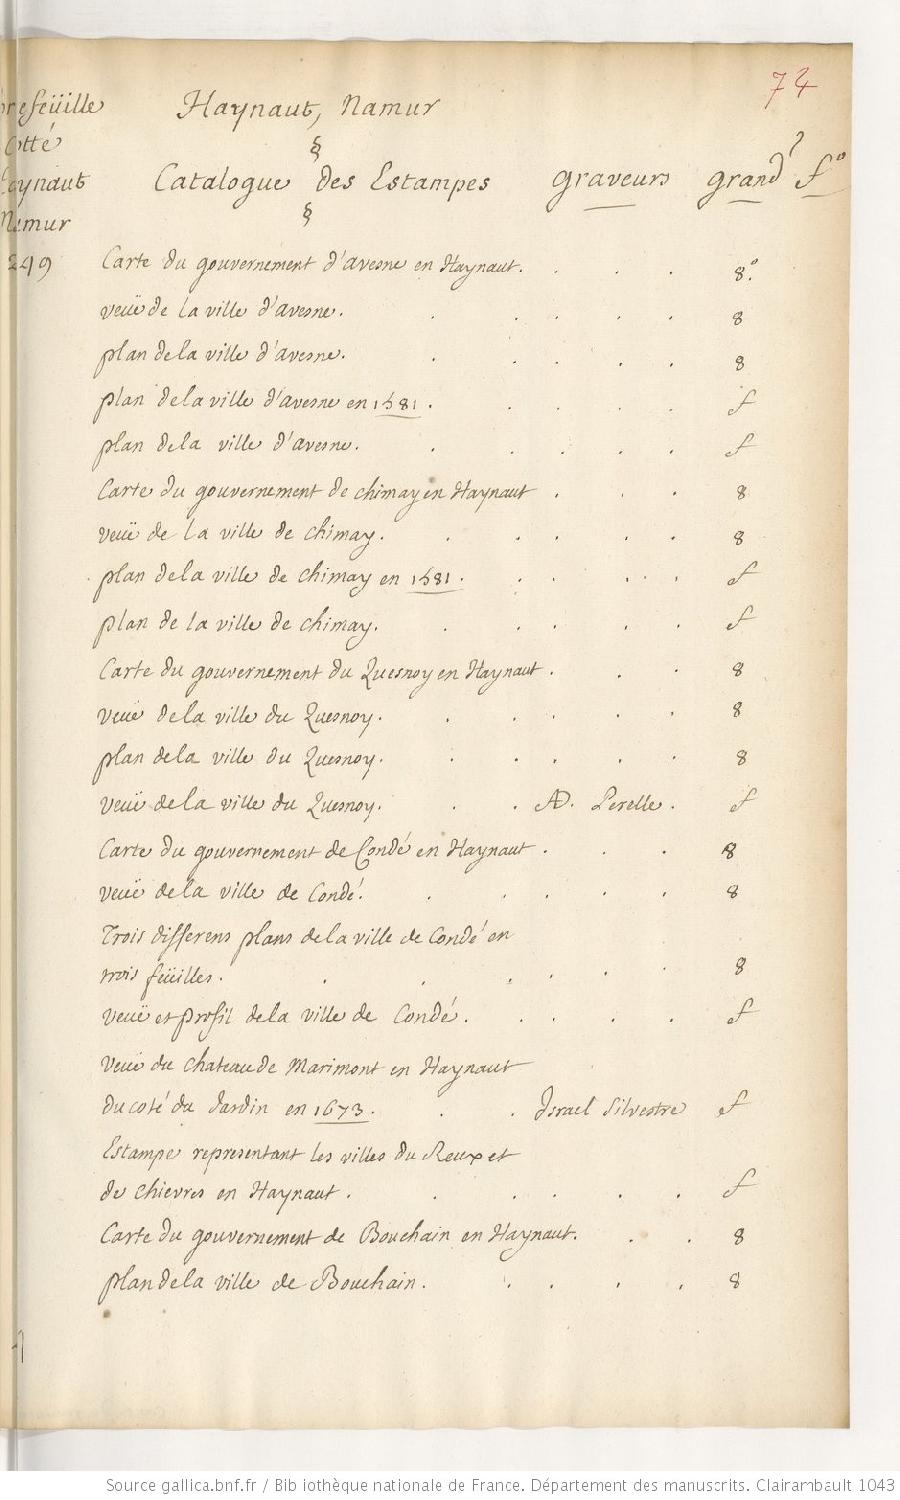 72
refeüille
Cotté
aynaut
Namur
249
Haynaut, Namur
§
Catalogue des Estampes graveurs grand? f°
§
Carte du gouvernement d'avesne en Haynaut. 8°.
veuë de la ville d'avesne. 8
plan de la ville d'avesne. 8
plan de la ville d'avesne en 1581. f
plan de la ville d'avesne. f
Carte du gouvernement de chimay en Haynaut 8
veuë de la ville de chimay. 8
plan de la ville de chimay en 1581. f
plan de la ville de chimay. f
Carte du gouvernement du Quesnoy en Haynaut. 8
veuë de la ville du Quesnoy. 8
plan de la ville du Quesnoy. 8
veuë de la ville du Quesnoy. AD. Perelle. f
Carte du gouvernement de Condé en Haynaut. 8
veuë de la ville de Condé. 8
Trois differens plans de la ville de Condé en
trois feüilles. 8
veuë et profil de la ville de Condé. f
Veuë du chateau de Marimont en Haynaut
du coté du Jardin en 1673. Israel Silvestre f
Estampe representant les villes du Reux et
de chievres en Haynaut. f
Carte du gouvernement de Bouchain en Haynaut. 8
plan de la ville de Bouchain. 8
Source gallica.bnf.fr / Bibliothèque nationale de France. Département des manuscrits. Clairambault 1043